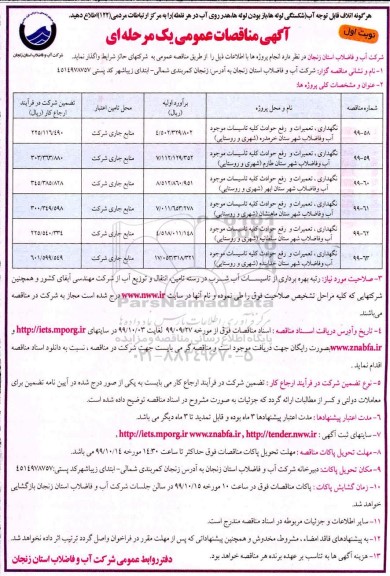 هرگونه اتلاف قابل توجه آب (شکستگی لوله ها، باز بودن لوله ها، هدر روی آب در هر نقطه) را به مرکز ارتباطات مردمی (۱۲۲) اطلاع دهید.
نوبت اول
آگهی مناقصات عمومی یک مرحله ای
شرکت آب و فاضلاب استان زنجان
شرکت آب و فاضلاب استان زنجان در نظر دارد انجام پروژه ها با اطلاعات ذیل را از طریق مناقصه عمومی به شرکتهای حائز شرایط واگذار نماید.
۱- نام و نشانی مناقصه گزار: شرکت آب و فاضلاب استان زنجان به آدرس زنجان کمربندی شمالی- ابتدای زیباشهر کد پستی ۴۵۱۴۹۷۸۷۵۷
۲- عنوان و مشخصات کلی پروژه ها:
شماره مناقصه | نام و محل پروژه | برآورد اولیه (ریال) | محل تامین اعتبار | تضمین شرکت در فرآیند ارجاع کار (ریال)
۹۹-۵۸ | نگهداری، تعمیرات و رفع حوادث کلیه تاسیسات موجود آب وفاضلاب شهرستان خرمدره (شهری و روستایی) | ۴/۵۰۲/۳۲۹/۸۰۲ | منابع جاری شرکت | ۲۲۵/۱۱۶/۴۹۰
۹۹-۵۹ | نگهداری، تعمیرات و رفع حوادث کلیه تاسیسات موجود آب وفاضلاب شهرستان طارم (شهری و روستایی) | ۷/۱۱۲/۱۲۹/۳۵۲ | منابع جاری شرکت | ۳۰۳/۳۶۳/۸۸۰
۹۹-۶۰ | نگهداری، تعمیرات و رفع حوادث کلیه تاسیسات موجود آب وفاضلاب شهرستان ابهر (شهری و روستایی) | ۸/۵۱۲/۸۶۰/۹۵۱ | منابع جاری شرکت | ۳۴۵/۳۸۵/۸۲۸
۹۹-۶۱ | نگهداری، تعمیرات و رفع حوادث کلیه تاسیسات موجود آب وفاضلاب شهرستان ماهنشان (شهری و روستایی) | ۷/۰۱۱/۶۵۳/۲۷۸ | منابع جاری شرکت | ۳۰۰/۳۴۹/۵۹۸
۹۹-۶۲ | نگهداری، تعمیرات و رفع حوادث کلیه تاسیسات موجود آب وفاضلاب شهرستان سلطانیه (شهری و روستایی) | ۴/۵۱۸/۰۱۱/۱۴۸ | منابع جاری شرکت | ۲۲۵/۵۴۰/۳۳۴
۹۹-۶۳ | نگهداری، تعمیرات و رفع حوادث کلیه تاسیسات موجود آب وفاضلاب شهرستان خدابنده (شهری و روستایی) | ۱۷/۰۵۳/۳۱۸/۳۲۱ | منابع جاری شرکت | ۶۰۱/۵۹۹/۵۴۹
۳- صلاحیت مورد نیاز: رتبه بهره برداری از تاسیسات آب شرب در رسته تامین انتقال و توزیع آب از شرکت مهندسی آبفای کشور و همچنین
شرکتهایی که کلیه مراحل تشخیص صلاحیت فوق را طی نموده و نام آنها در سایت www.nww.ir درج شده است مجاز به شرکت در مناقصه
می‌باشند.
۴- تاریخ و آدرس دریافت اسناد مناقصه: اسناد مناقصات فوق از مورخه ۹۹/۰۹/۲۷ لغایت ۹۹/۱۰/۰۳ در سایتهای http://iets.mporg.ir و
www.znabfa.ir بصورت رایگان جهت دریافت موجود است و مناقصه گر می بایست جهت شرکت در مناقصه، نسبت به دانلود اسناد مناقصه
اقدام نماید.
۵- نوع تضمین شرکت در فرآیند ارجاع کار: تضمین شرکت در فرآیند ارجاع کار می بایست به یکی از صور درج شده در آیین نامه تضمین برای
معاملات دولتی و کسر از مطالبات ارائه گردد که جزئیات به صورت مشروح در اسناد مناقصه توضیح داده شده است.
۶- مدت اعتبار پیشنهادها: مدت اعتبار پیشنهادها ۳ ماه بوده و قابل تمدید تا ۳ ماه دیگر می باشد.
۷- سایتهای ثبت آگهی: http://iets.mporg.ir www.znabfa.ir , http://tender.nww.ir
۸- مهلت تحویل پاکات مناقصه: مهلت تحویل پاکات مناقصات فوق حداکثر تا ساعت ۱۴:۳۰ مورخه ۹۹/۱۰/۱۴ می باشد.
۹- مکان تحویل پاکات: دبیرخانه شرکت آب و فاضلاب استان زنجان به آدرس زنجان کمربندی شمالی- ابتدای زیباشهر کدپستی: ۴۵۱۴۹۷۸۷۵۷
۱۰- زمان گشایش پاکات: پاکات مناقصات فوق در ساعت ۱۰ مورخه ۹۹/۱۰/۱۵ در سالن جلسات شرکت آب و فاضلاب استان زنجان بازگشایی
خواهد شد.
۱۱- سایر اطلاعات و جزئیات مربوطه در اسناد مناقصه مندرج است.
۱۲- به پیشنهادهای فاقد امضاء، مشروط، مخدوش و همچنین پیشنهاداتی که پس از مهلت مقرر در فراخوان واصل گردد ترتیب اثر داده نخواهد شد.
۱۳- هزینه آگهی ها به تناسب بر عهده برنده هر مناقصه خواهد بود.
دفتر روابط عمومی شرکت آب و فاضلاب استان زنجان